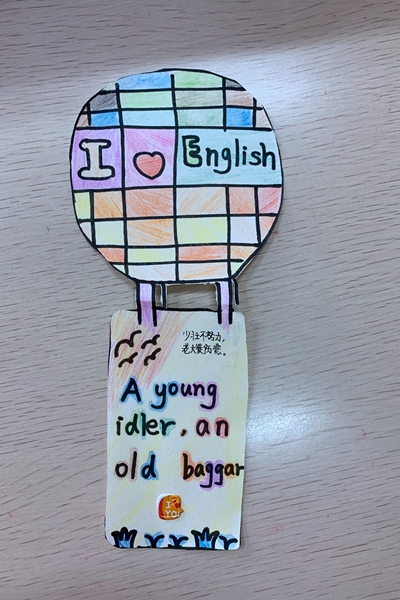 I ♥ English
少壮不努力,
老大徒伤悲。
A young
idler, an
old baggar
I ♥
YOU